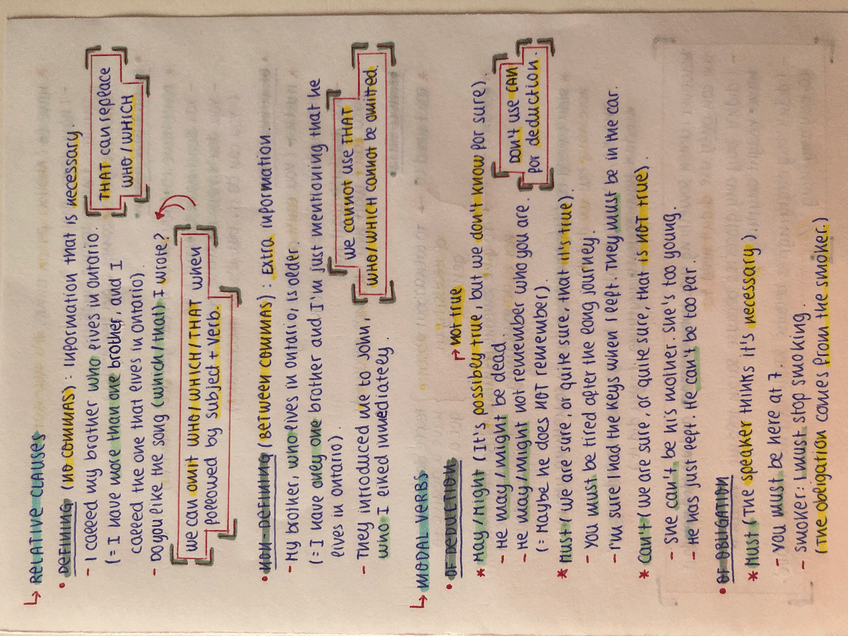 ↳ RELATIVE CLAUSES
• DEFINING (NO COMMAS): INFORMATION that is necessary.
- I called my brother who lives in Ontario.
(= I have more than one brother, and I
called the one that lives in Ontario).
THAT can replace
WHO/WHICH
- Do you like the song (which/that) I wrote?
we can omit WHO/WHICH/THAT when
followed by subject + verb.
• NON-DEFINING (BETWEEN COMMAS): EXTRA INFORMATION.
- My brother, who lives in Ontario, is older.
(= I have only one brother and I'm just mentioning that he
lives in Ontario).
- They introduced me to John,
who I liked immediately.
we cannot use THAT
WHO/WHICH cannot be omitted
↳ MODAL VERBS
• OF DEDUCTION
not true
* May/Might (It's possibly true, but we don't know for sure).
- He may/might be dead.
- He may/might not remember who you are.
(= Maybe he does NOT remember).
Don't use CAN
for deduction.
* Must (we are sure, or quite sure, that it's true).
- You must be tired after the long journey.
- I'm sure I had the keys when I left. They must be in the car.
* Can't (we are sure, or quite sure, that is NOT true).
- She can't be his mother. She's too young.
- He has just left. He can't be too far.
• OF OBLIGATION
* Must (The speaker thinks it's necessary).
- You must be here at 7.
- Smoker: I must stop smoking.
(The obligation comes from the smoker.)